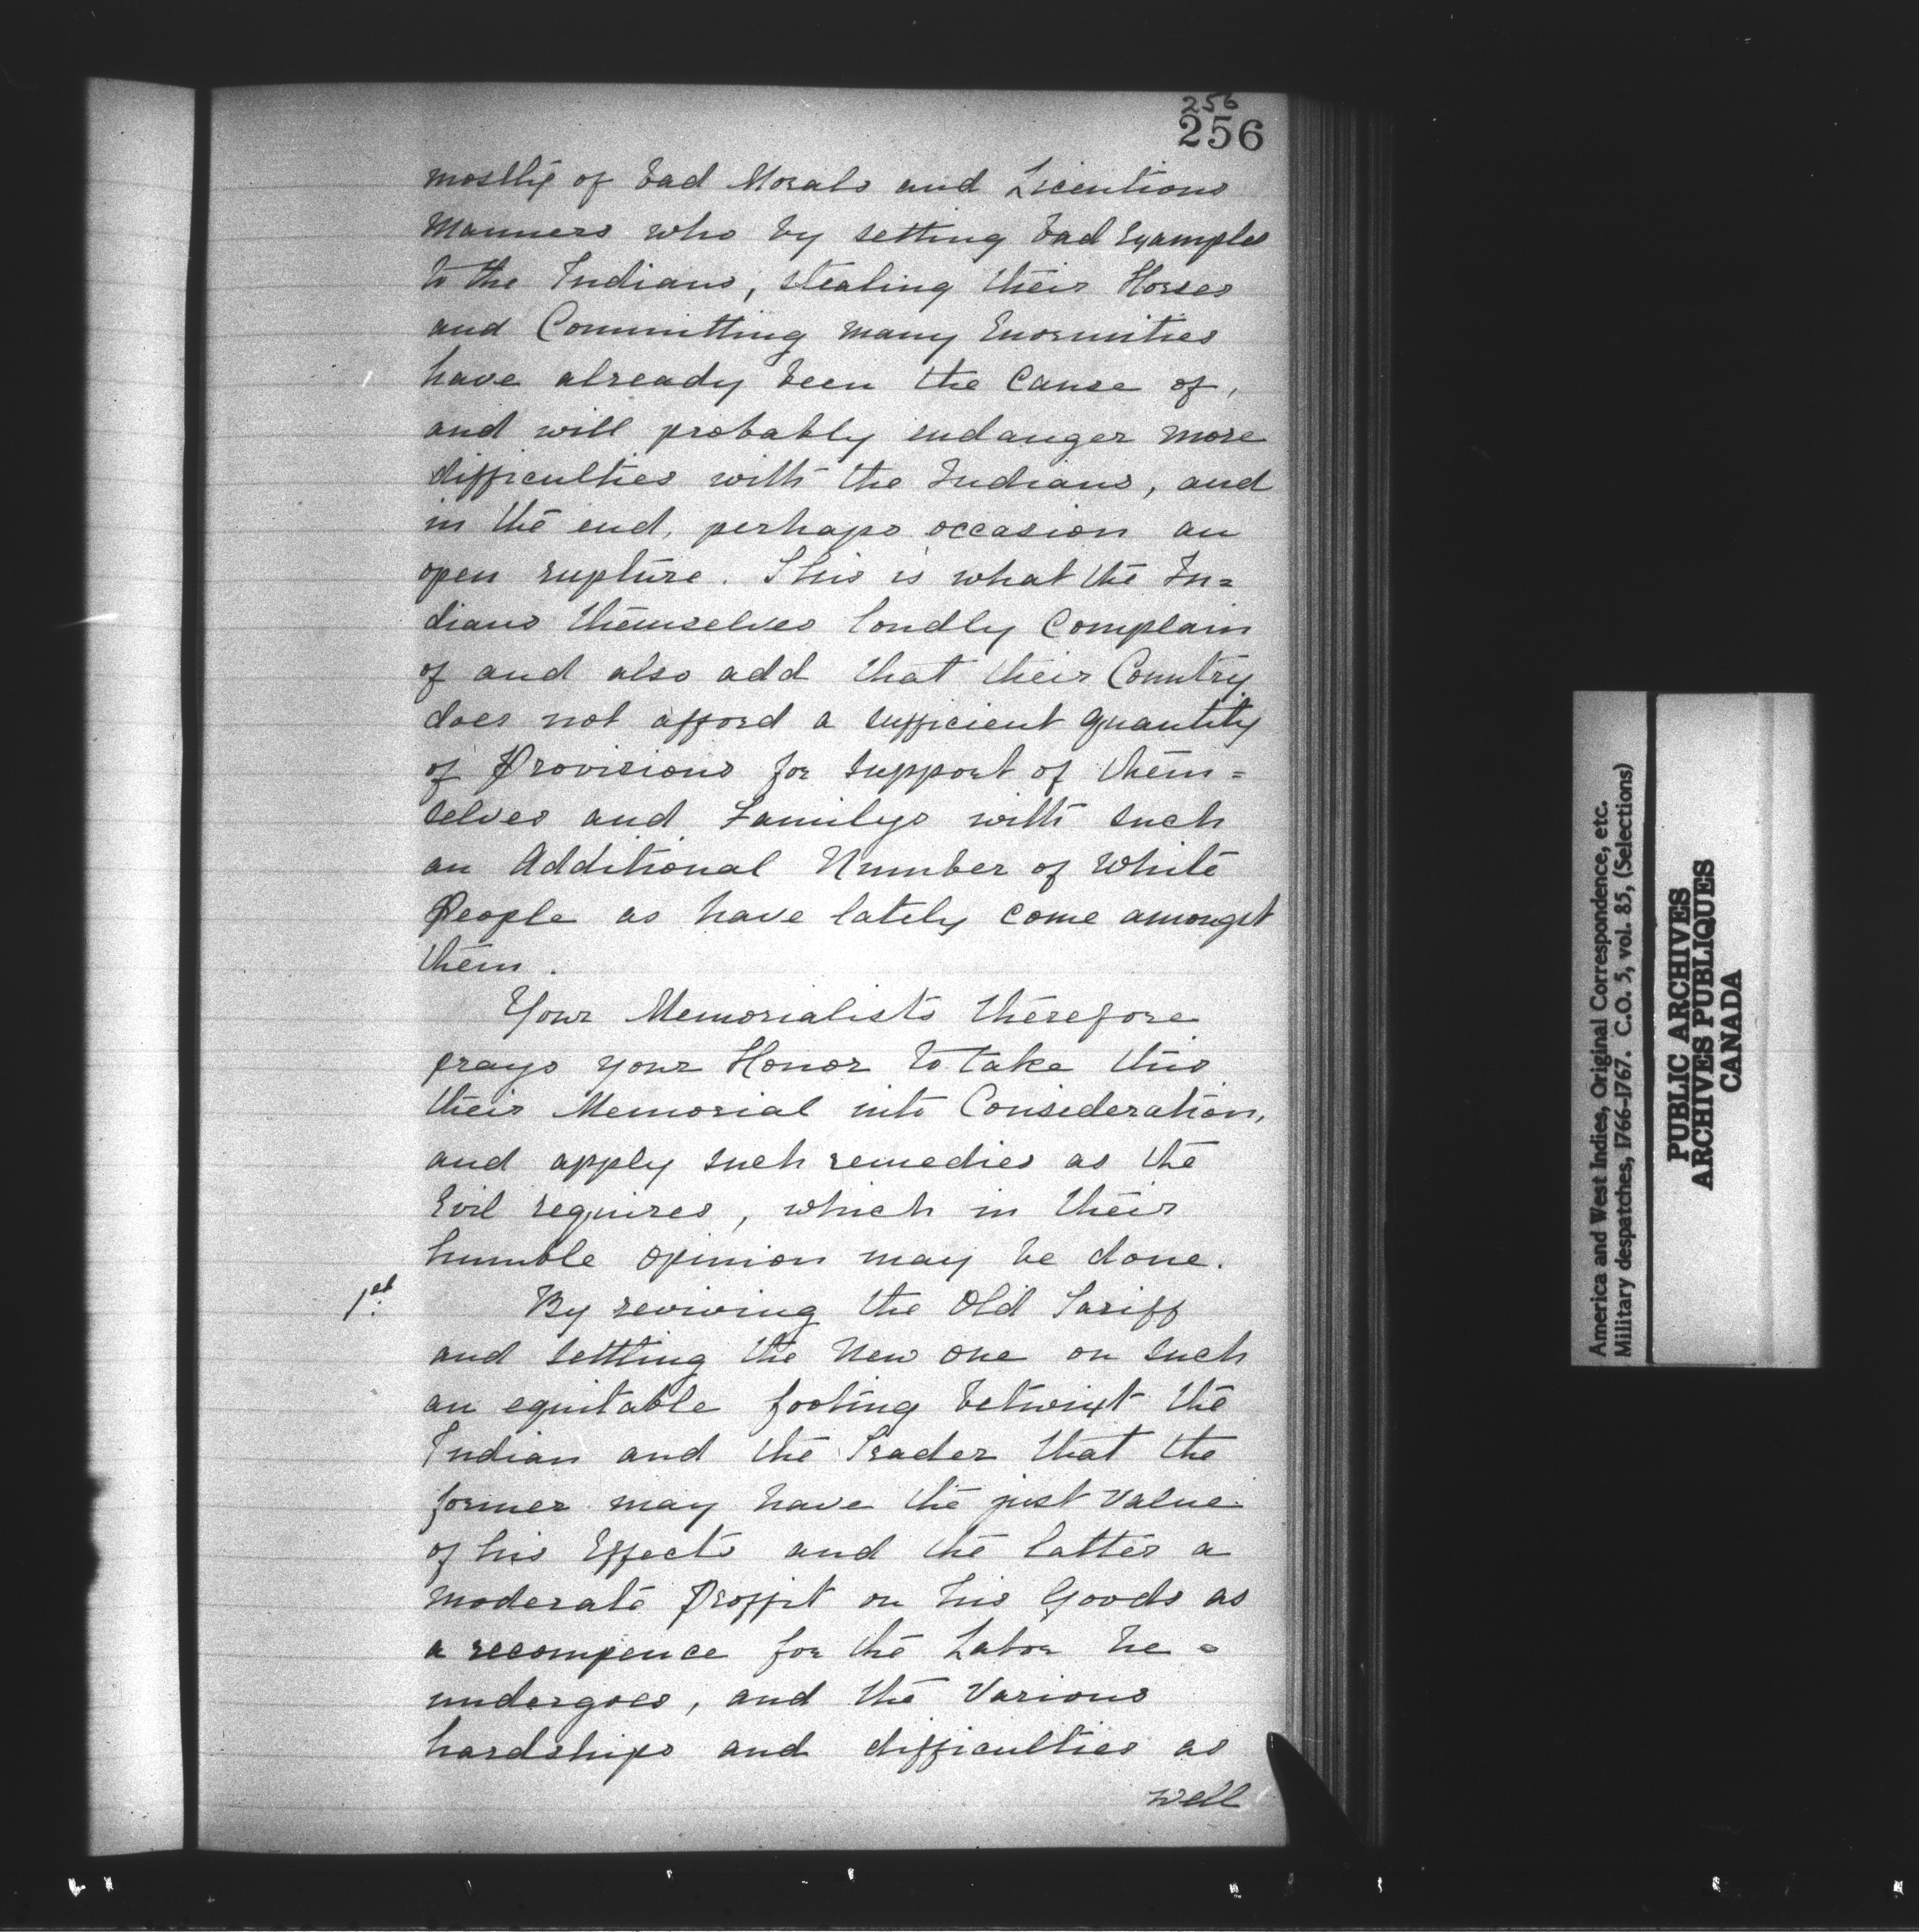 256
256
mostly of bad Morals and Licentious
Manners who by setting bad Examples
to the Indians, stealing their Horses
and Committing many Enormities
have already been the Cause of,
and will probably endanger more
difficulties with the Indians, and
in the end, perhaps occasion an
open rupture. This is what the In=
dians themselves loudly Complain
of and also add that their Country
does not afford a sufficient Quantity
of Provisions for support of them=
selves and Familys with such
an Additional Number of White
People as have lately come amongst
them.
Your Memorialists therefore
prays your Honor to take this
their Memorial into Consideration,
and apply such remedies as the
Evil requires, which in their
humble opinion may be done.
1st. By reviving the Old Tariff
and settling the New one on such
an equitable footing betwixt the
Indian and the Trader that the
former may have the just Value
of his Effects and the latter a
moderate Proffit on his Goods as
a recompence for the Labor he =
undergoes, and the Various
hardships and difficulties as
well
America and West Indies, Original Correspondence, etc.
Military despatches, 1766-1767. C.O. 5, vol. 85, (Selections)
PUBLIC ARCHIVES
ARCHIVES PUBLIQUES
CANADA